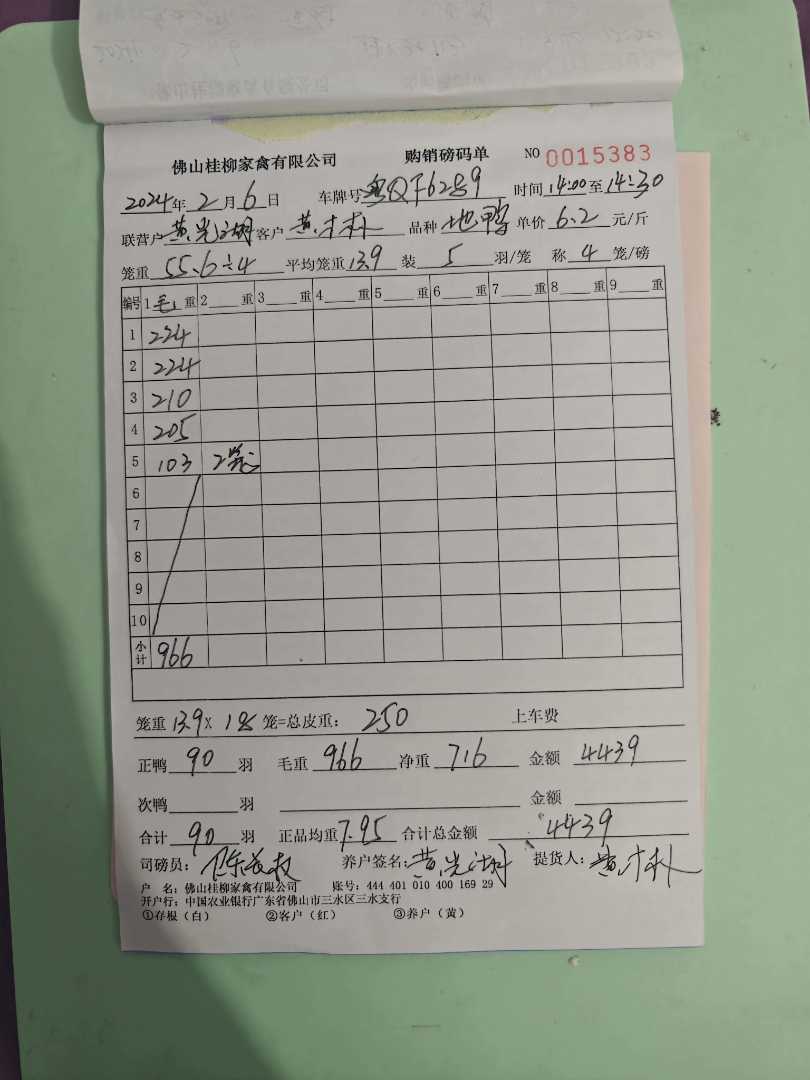 佛山桂柳家禽有限公司 购销磅码单 NO 0015383
2024年2月6日 车牌号粤QF6289 时间14:00至14:30
联营户黄光湖客户黄才朴 品种地鸭单价6.2元/斤
笼重55.6÷4平均笼重13.9装5羽/笼 称4笼/磅
编号 1毛重 2重 3重 4重 5重 6重 7重 8重 9重
1 224
2 224
3 210
4 205
5 103 2笼
6
7
8
9
10
小计 966
笼重13.9×18笼=总皮重：250 上车费
正鸭90羽 毛重966净重716 金额4439
次鸭羽 金额
合计90羽 正品均重7.95合计总金额4439
司磅员： 养户签名：黄光湖 提货人：黄才朴
户 名：佛山桂柳家禽有限公司 账号：444 401 010 400 169 29
开户行：中国农业银行广东省佛山市三水区三水支行
①存根（白） ②客户（红） ③养户（黄）